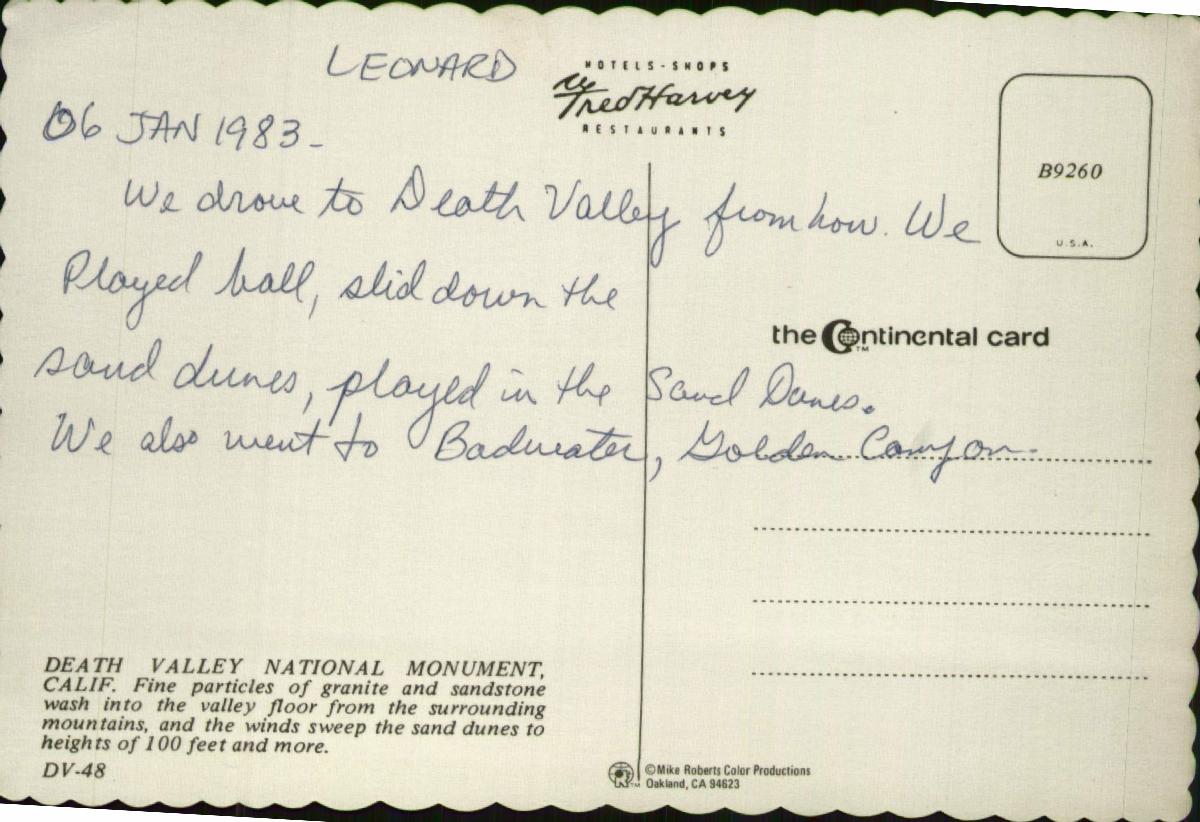 LEONARD
HOTELS-SHOPS
Fred Harvey
RESTAURANTS
06 JAN 1983-
B9260
U.S.A.
We drove to Death Valley from how. We
Played ball, slid down the
the Continental card™
sand dunes, played in the Sand Dunes.
We also went to Badwater, Golden Canyon.
DEATH VALLEY NATIONAL MONUMENT,
CALIF. Fine particles of granite and sandstone
wash into the valley floor from the surrounding
mountains, and the winds sweep the sand dunes to
heights of 100 feet and more.
DV-48
©Mike Roberts Color Productions
Oakland, CA 94623